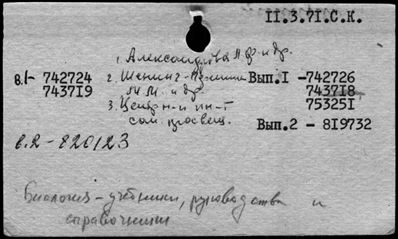 II.3.7I.С.К.
1. Александрова Л.Ф. и др.
в.I- 742724 2. Шенинг- Вып.I -742726
743719 М.М. и др. 743718
3. Центр. н-и ин-т 75325I
сан. просвещ.
Вып.2 - 819732
в.2-820123
Биология - учебники, руководства и
справочники